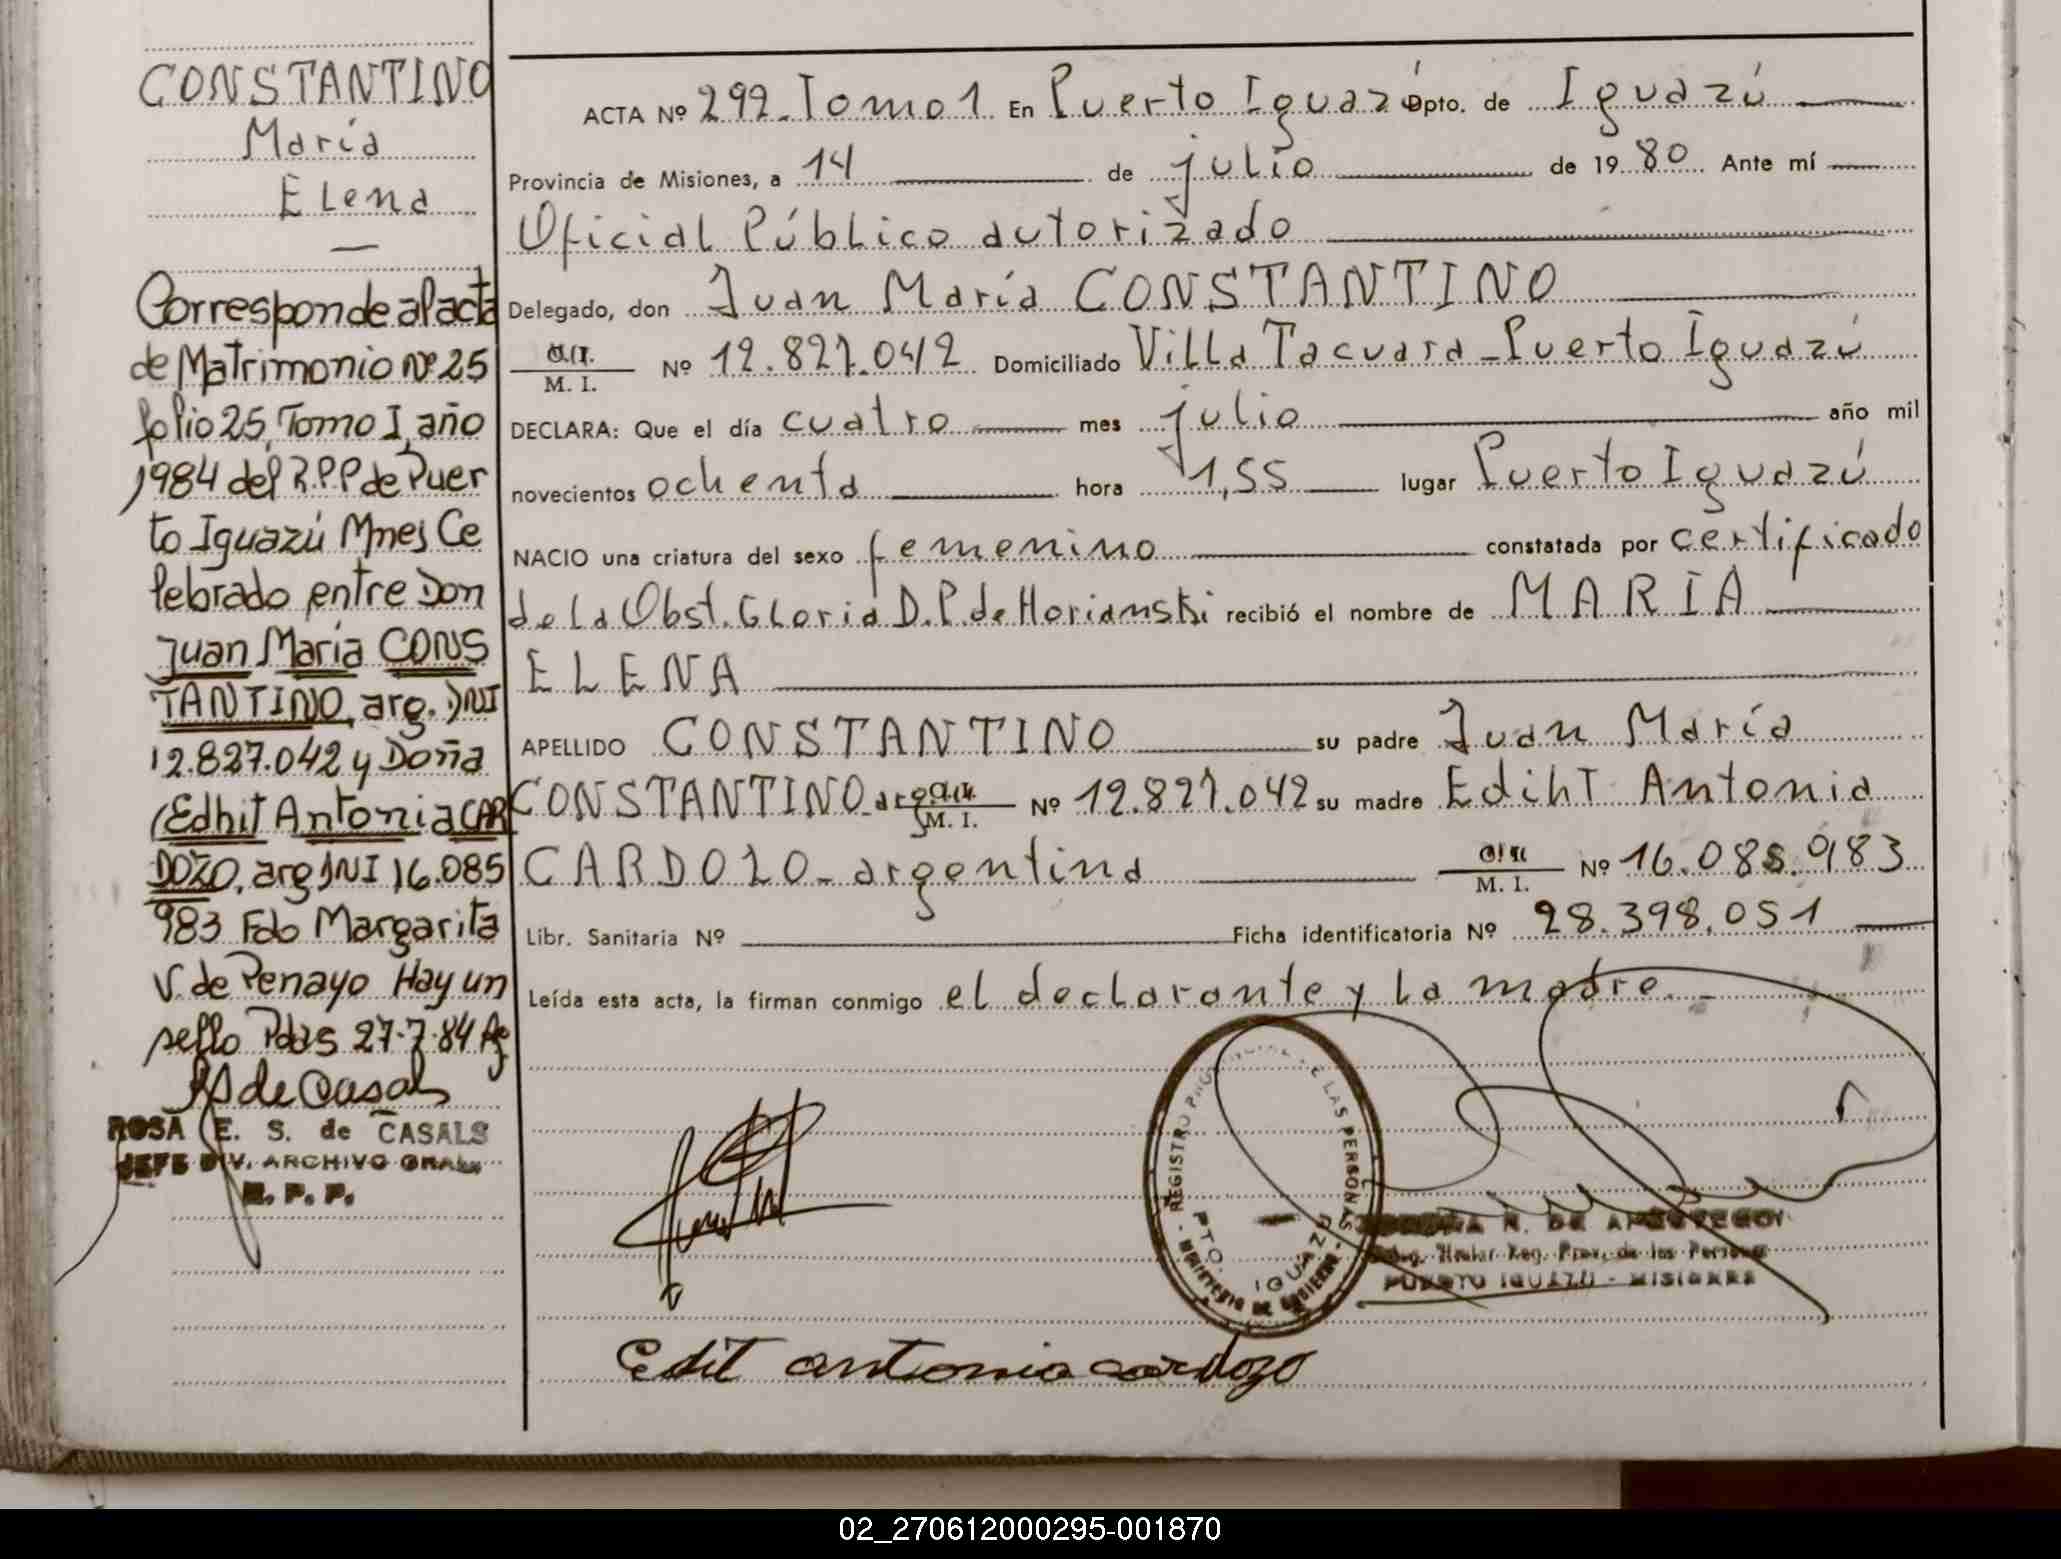 CONSTANTINO
María
Elena
Corresponde al acta
de Matrimonio Nº 25
folio 25, Tomo I, año
1984 del R.P.P de Puer
to Iguazú Mnes Ce
lebrado entre Don
Juan María CONS
TANTINO, arg. DNI
12.827.042 y Doña
Edhit Antonia CAR
DOZO, arg DNI 16.085
983 Fdo Margarita
V. de Penayo Hay un
sello Pdas 27-7-84
RS de Casals
ROSA E. S. de CASALS
JEFE DIV. ARCHIVO GRAL.
R. P. P.
ACTA Nº 292 - Tomo 1 En Puerto Iguazú Dpto. de Iguazú
Provincia de Misiones, a 14 de julio de 1980 Ante mí
Oficial Público autorizado
Delegado, don Juan María CONSTANTINO
M. I. Nº 12.827.042 Domiciliado Villa Tacuara - Puerto Iguazú
DECLARA: Que el día cuatro mes julio año mil
novecientos ochenta hora 1,55 lugar Puerto Iguazú
NACIO una criatura del sexo femenino constatada por certificado
de la Obst. Gloria D. P. de Horianski recibió el nombre de MARÍA
ELENA
APELLIDO CONSTANTINO su padre Juan María
CONSTANTINO - arg M. I. Nº 12.827.042 su madre Ediht Antonia
CARDOZO - argentina M. I. Nº 16.085.983
Libr. Sanitaria Nº Ficha identificatoria Nº 28.398.051
Leída esta acta, la firman conmigo el declarante y la madre.
REGISTRO DE LAS PERSONAS
MINISTERIO DE GOBIERNO
DPTO. IGUAZU
N. DE
Titular Reg. Prov. de las Personas
PUERTO IGUAZU - MISIONES
Edit antonia cardozo
02_270612000295-001870